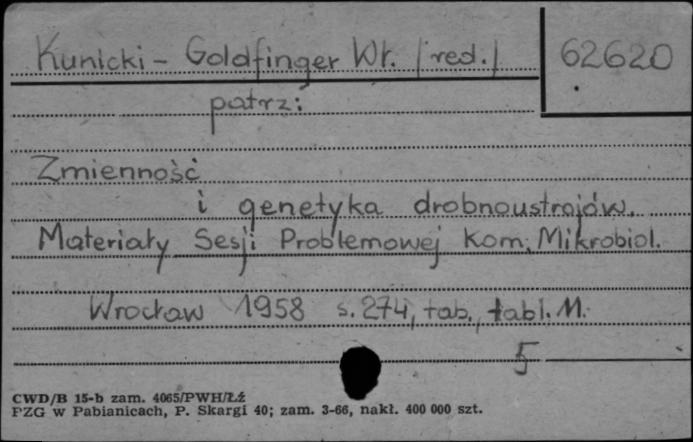 Kunicki - Goldfinger Wł. /red./ 62620
patrz:
Zmienność
i genetyka drobnoustrojów.
Materiały Sesji Problemowej Kom. Mikrobiol.
Wrocław 1958 s. 274, tab., tabl. M.
5
CWD/B 15-b zam. 4065/PWH/Łź
PZG w Pabianicach, P. Skargi 40; zam. 3-66, nakł. 400 000 szt.